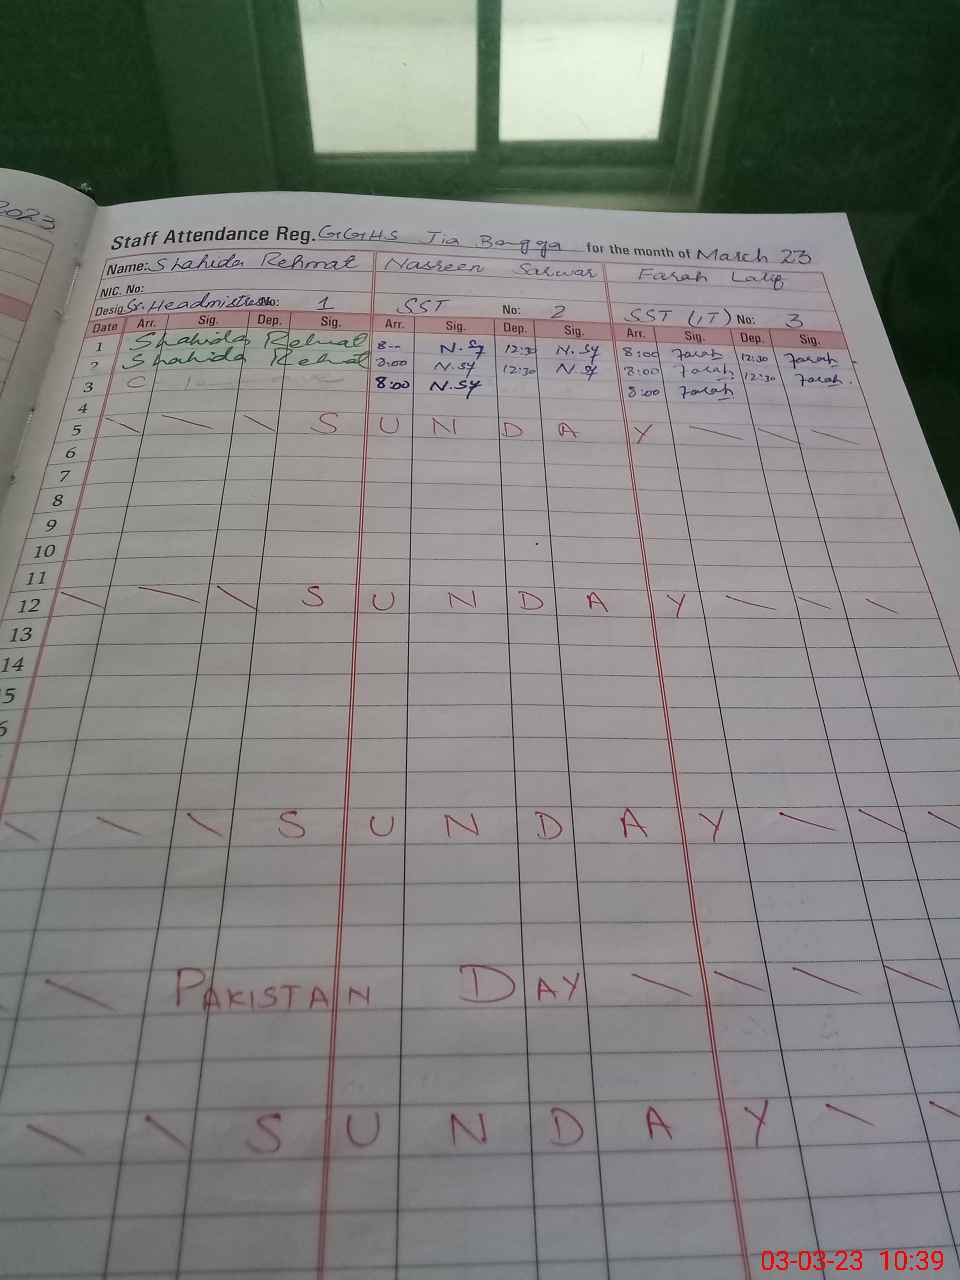 2023
Staff Attendance Reg. GGHS Jia Bagga for the month of March 23
Name: Shahida Rehmat Nasreen Sarwar Farah Latif
NIC. No:
Desig Sr. Headmistress No: 1 SST No: 2 SST (IT) No: 3
Date Arr. Sig. Dep. Sig. Arr. Sig. Dep. Sig. Arr. Sig. Dep. Sig.
1 Shahida Rehmat 8-- N.Sy 12:30 N.Sy 8:00 Farah 12:30 Farah
2 Shahida Rehmat 8:00 N.Sy 12:30 N.Sy 8:00 Farah 12:30 Farah
3 C 8:00 N.Sy 8:00 Farah
4
5 S U N D A Y
6
7
8
9
10
11
12 S U N D A Y
13
14
5
6
S U N D A Y
PAKISTAN DAY
S U N D A Y
03-03-23 10:39